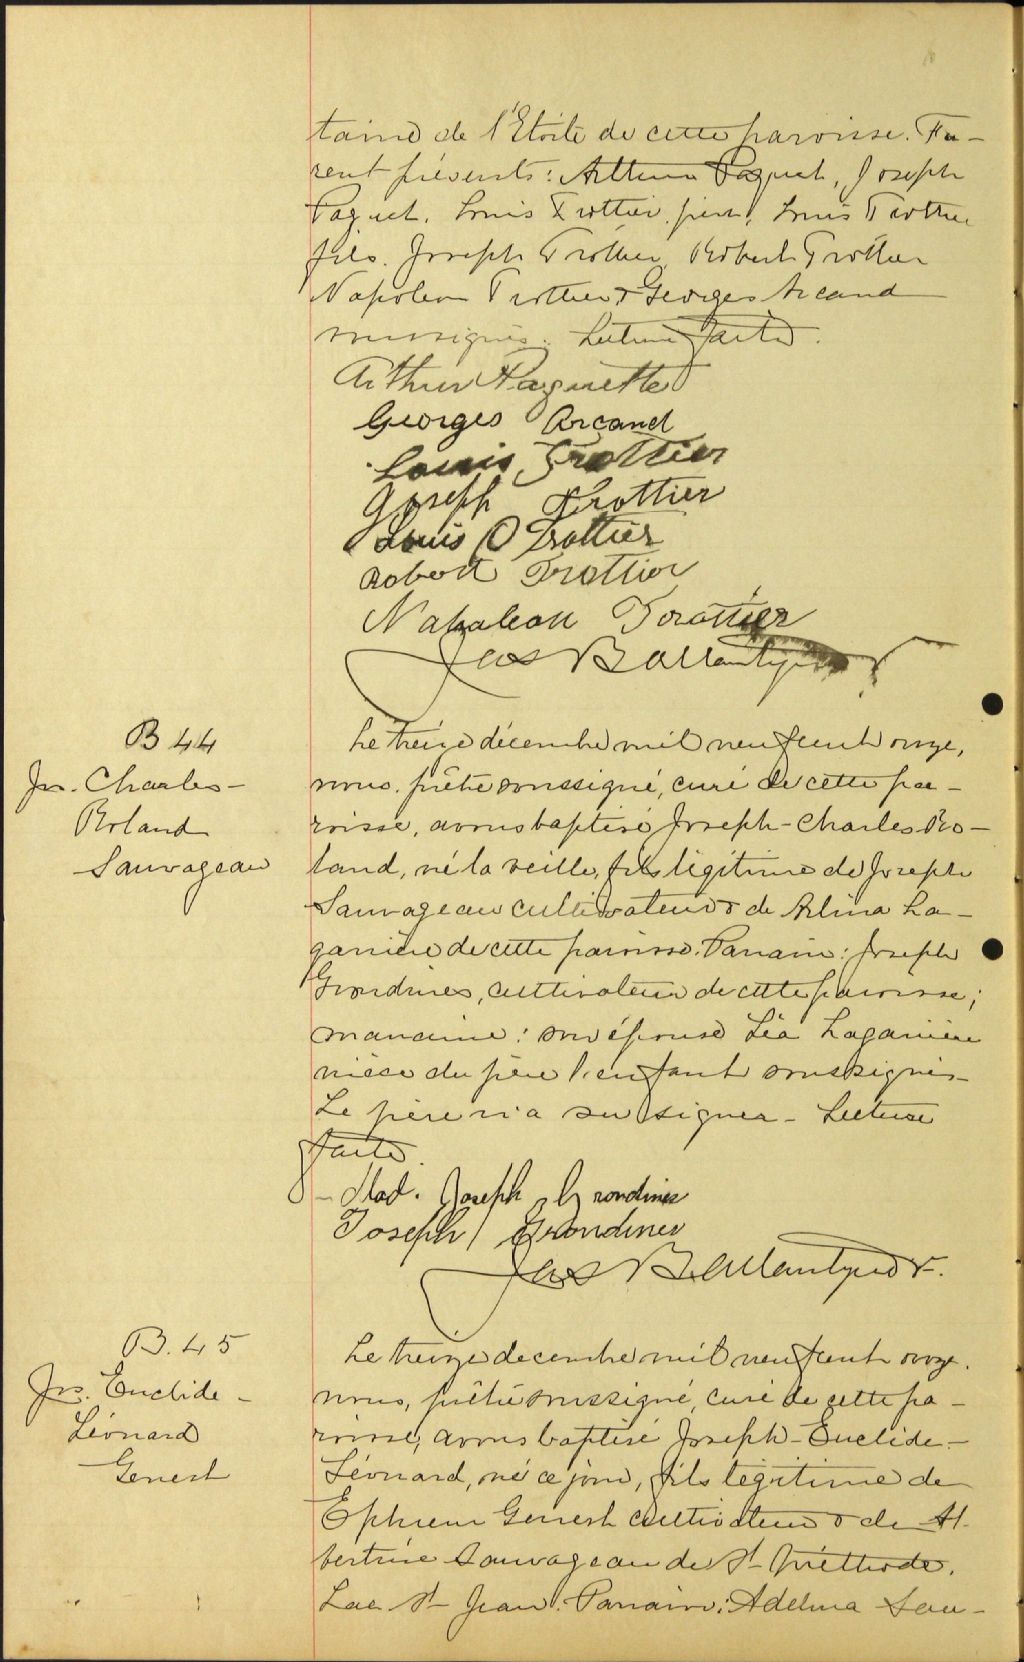 taine de l'Etoile de cette paroisse. Fu-
rent présents: Arthur Paquet, Joseph
Paquet, Louis Trottier, père, Louis Trottier
fils, Joseph Trottier, Robert Trottier
Napoleon Trottier & Georges Arcand
soussignés. Lecture faite.
Arthur Paquette
Georges Arcand
Louis Trottier
Joseph Trottier
Louis O Trottier
Robert Trottier
Napaleon Torattier
Jas Ballantyne ptr.
B 44
Js. Charles-
Roland
Sauvageau
Le treize décembre mil neuf cent onze,
nous, prêtre soussigné, curé de cette pa-
roisse, avons baptisé Joseph-Charles Ro-
land, né la veille, fils légitime de Joseph
Sauvageau cultivateur & de Arlina La-
ganière de cette paroisse. Parrain: Joseph
Grondines, cultivateur de cette paroisse;
marraine: son épouse Léa Laganière
nièce du père l'enfant soussignés-
Le père n'a su signer - Lecture
faite.
- Mad. Joseph Grondines
Joseph Grondines
Jas Ballantyne ptr.
B. 45
Jos. Euclide-
Léonard
Genest
Le treize decembre mil neuf cent onze.
nous, prêtre soussigné, curé de cette pa-
roisse, avons baptisé Joseph-Euclide-
Léonard, né ce jour, fils légitime de
Ephrem Genest cultivateur & de Al-
bertine Sauvageau de St-Méthode,
Lac St-Jean. Parrain: Adelma Sau-